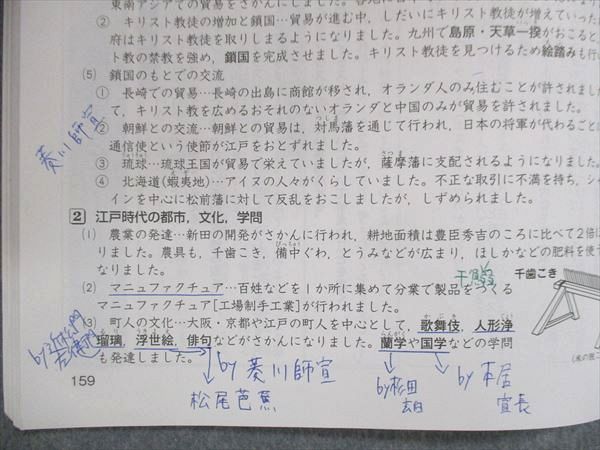 東南アジアでの貿易をさかんにしました。
② キリスト教徒の増加と鎖国…貿易が進む中，しだいにキリスト教徒が増えていった
府はキリスト教徒を取りしまるようになりました。九州で島原・天草一揆がおこると
ト教の禁教を強め，鎖国を完成させました。キリスト教徒を見つけるため絵踏みも行い
(5) 鎖国のもとでの交流
① 長崎での貿易…長崎の出島に商館が移され，オランダ人のみ住むことが許されました
て，キリスト教を広めるおそれのないオランダと中国のみが貿易を許されました。
② 朝鮮との交流…朝鮮との貿易は，対馬藩を通じて行われ，日本の将軍が代わるごとに
通信使という使節が江戸をおとずれました。
③ 琉球…琉球王国が貿易で栄えていましたが，薩摩藩に支配されるようになりました。
④ 北海道(蝦夷地)…アイヌの人々がくらしていました。不正な取引に不満を持ち，シャ
インを中心に松前藩に対して反乱をおこしましたが，しずめられました。
菱川師宣
2 江戸時代の都市，文化，学問
(1) 農業の発達…新田の開発がさかんに行われ，耕地面積は豊臣秀吉のころに比べて2倍に
なりました。農具も，千歯こき，備中ぐわ，とうみなどが広まり，ほしかなどの肥料を使う
なりました。
千歯こき
(2) マニュファクチュア…百姓などを1か所に集めて分業で製品をつくる
マニュファクチュア[工場制手工業]が行われました。
(3) 町人の文化…大阪・京都や江戸の町人を中心として，歌舞伎，人形浄
瑠璃，浮世絵，俳句などがさかんになりました。蘭学や国学などの学問
も発達しました。
by 近松門左衛門
by 菱川師宣
松尾芭蕉
by 杉田玄白
by 本居宣長
159